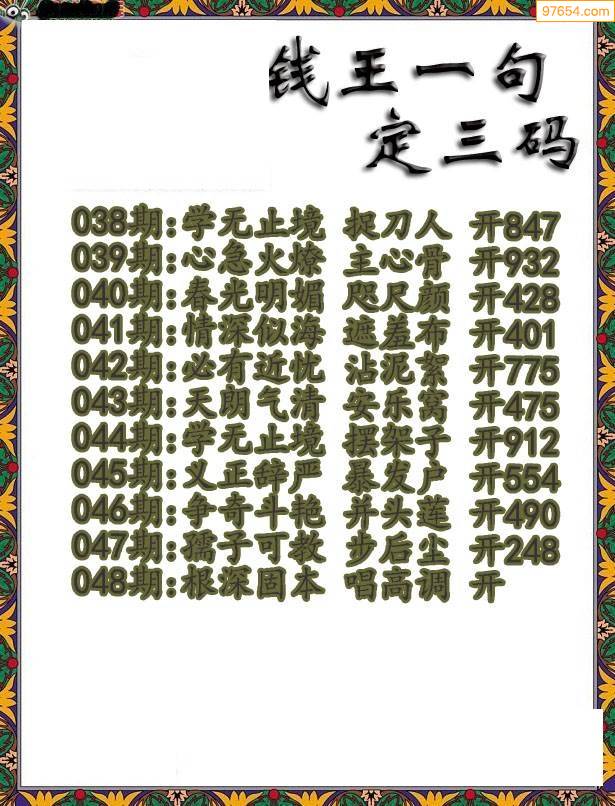 97654.com
钱王一句
定三码
038期:学无止境 捉刀人 开847
039期:心急火燎 主心骨 开932
040期:春光明媚 咫尺颜 开428
041期:情深似海 遮羞布 开401
042期:必有近忧 沾泥絮 开775
043期:天朗气清 安乐窝 开475
044期:学无止境 摆架子 开912
045期:义正辞严 暴发户 开554
046期:争奇斗艳 并头莲 开490
047期:孺子可教 步后尘 开248
048期:根深固本 唱高调 开